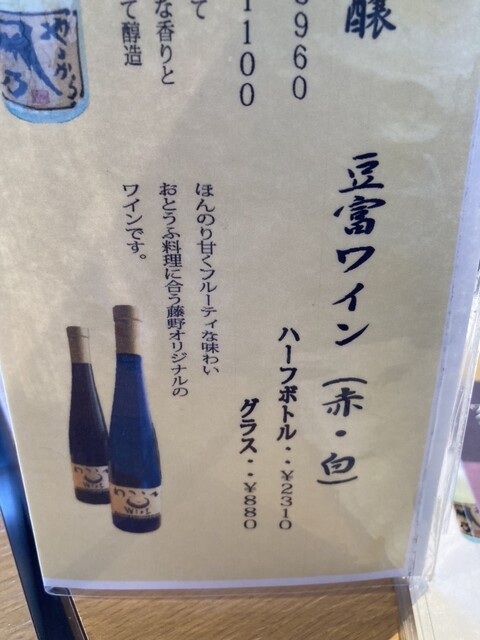 醸
3960
1100
て
な香りと
て醇造
地こがる
豆富ワイン（赤・白）
ハーフボトル・・￥2310
グラス・・￥880
ほんのり甘くフルーティな味わい
おとうふ料理に合う藤野オリジナルの
ワインです。